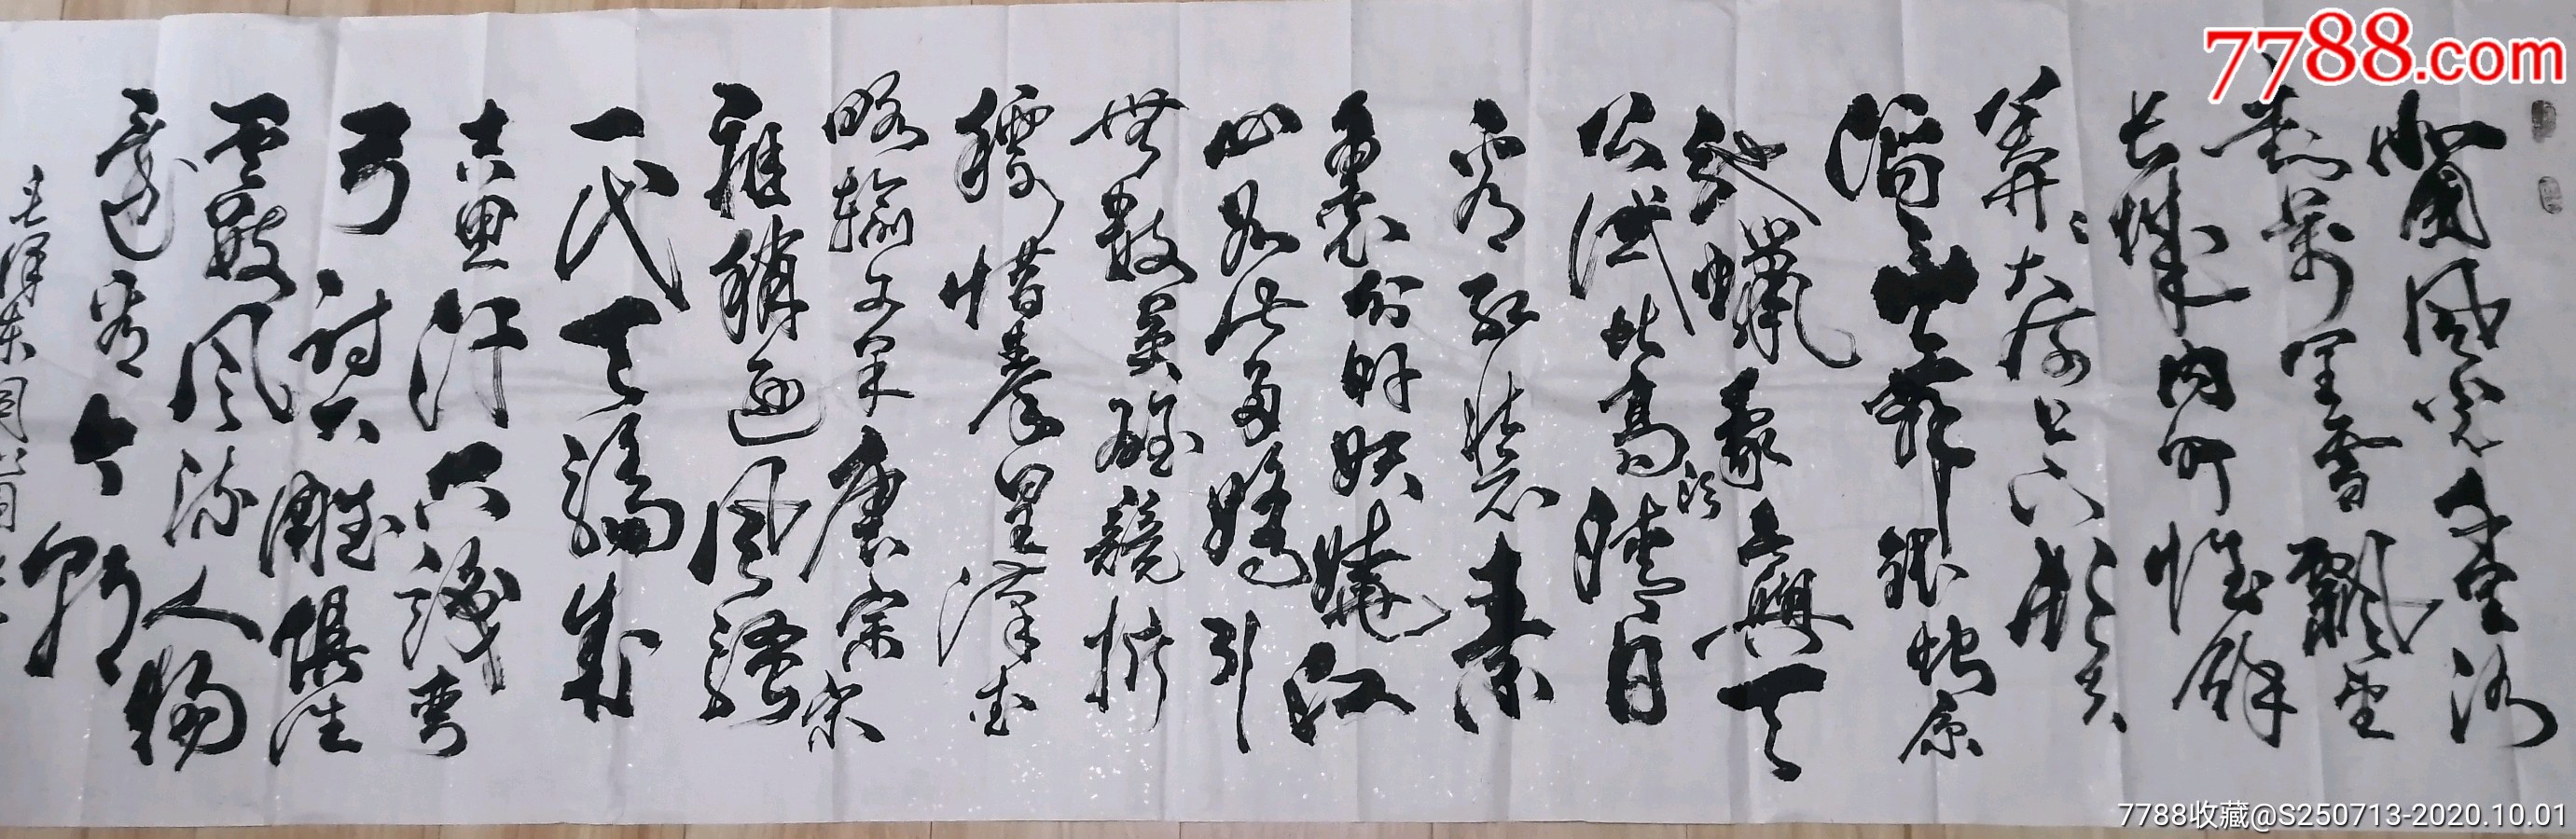 北國風光千里冰
封萬里雪飄望
长城内外惟餘
莽々大河上下顿失
滔々山舞銀蛇原
驰蠟象欲與天
公試比高须晴日
看红装素
裹分外妖娆江
山如此多嬌引
無數英雄競折
腰惜秦皇漢武
略輸文采唐宗宋
祖稍逊風騷
一代天驕成
吉思汗只識弯
弓射大雕俱往
矣數風流人物
還看今朝
毛泽东词一首
7788.com
7788收藏@S250713-2020.10.01